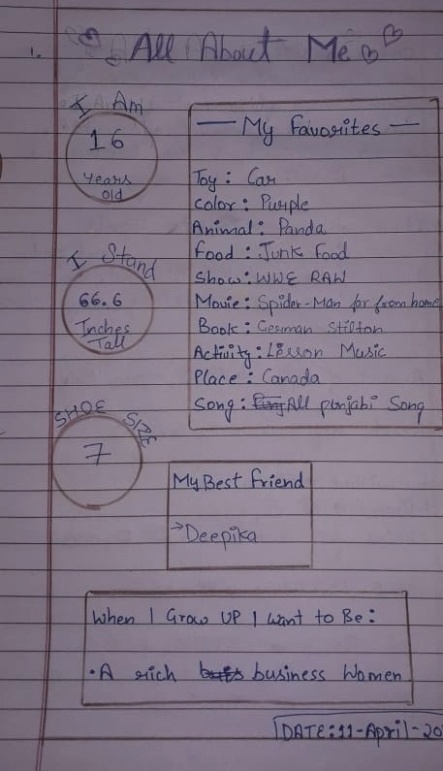 1.
All About Me
I Am
16
Years
old
— My Favorites —
Toy : Car
Color : Purple
Animal : Panda
Food : Junk Food
Show : WWE RAW
Movie : Spider-Man far from home
Book : Gesiman Stilton
Activity : Lisson Music
Place : Canada
Song : All punjabi Song
I Stand
66.6
Inches
Tall
SHOE SIZE
7
My Best Friend
→Deepika
When I Grow UP I Want to Be :
• A rich business Women
DATE:11-April-20